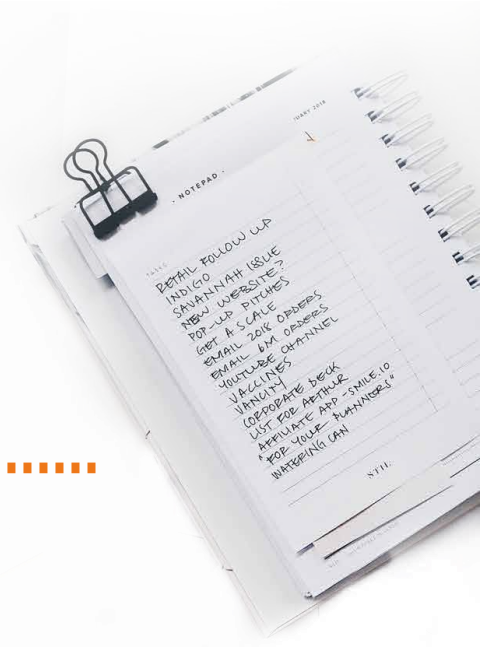 · NOTEPAD ·
TASKS
RETAIL FOLLOW UP
INDIGO
SAVANNAH ISSUE
NEW WEBSITE?
POP-UP PITCHES
GET A SCALE
EMAIL 2018 ORDERS
EMAIL 6M ORDERS
YOUTUBE CHANNEL
VACCINES
VANCITY
CORPORATE DECK
LIST FOR ARTHUR
AFFILIATE APP - SMILE.IO
"FOR YOUR PLANNERS"
WATERING CAN
2018